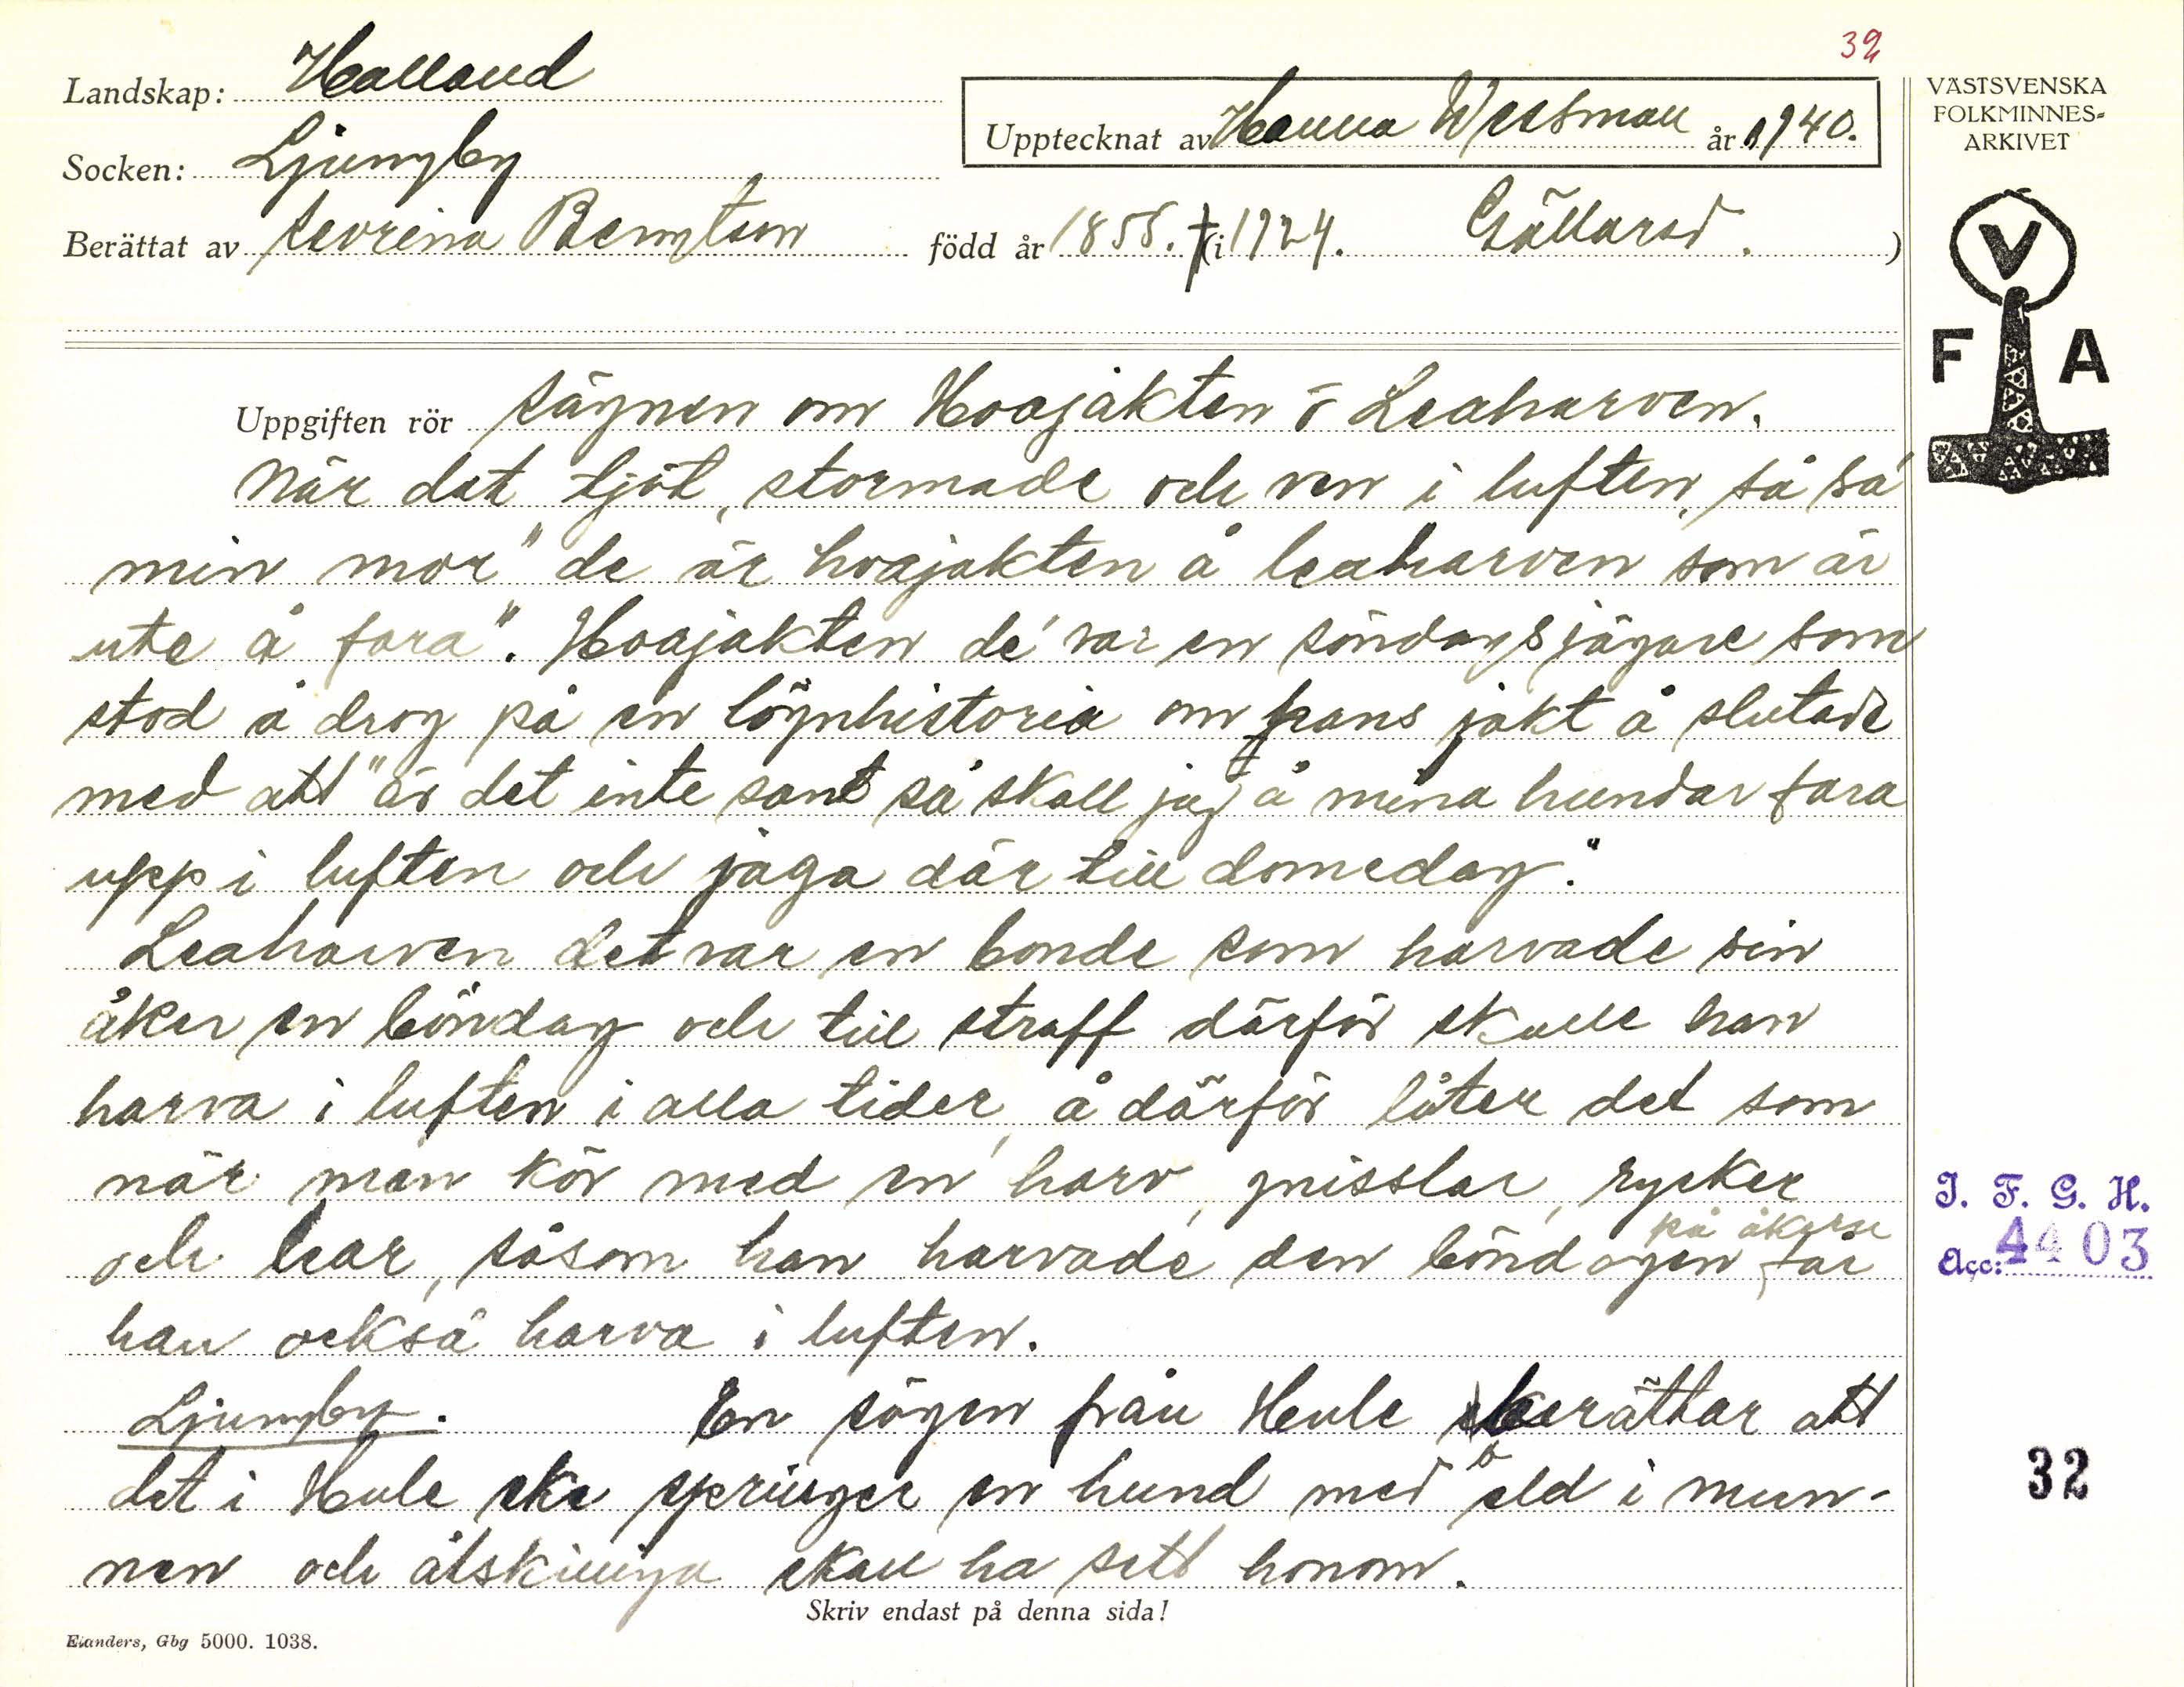 32
Landskap: Halland
Upptecknat av Hanna Wessman år 1940.
VÄSTSVENSKA
FOLKMINNES-
ARKIVET
Socken: Ljungby
Berättat av Sevrina Bengtson född år 1855. † (i 1924. Gällared.)
V
F A
Uppgiften rör Sägnen om Hoajakten o Leaharven.
När det tjöt, stormade och ven i luften, så sa
min mor "de är hoajakten å leaharven som är
ute å fara". Hoajakten de' var en söndagsjägare som
stod å drog på en lögnhistoria om hans jakt å slutade
med att "är det inte sant så skall jag å mina hundar fara
upp i luften och jaga där till domedag."
Leaharven det var en bonde som harvade sin
åker en böndag och till straff därför skulle han
harva i luften i alla tider, å därför låter det som
när man kör med en harv, gnisslar, rycker
och lear, såsom han harvade den böndagen på åkern får
han också harva i luften.
Ljungby. En sägen från Heule berättar att
det i Hule eke springer en hund med eld i mun-
nen och åtskilliga skall ha sett honom.
Skriv endast på denna sida!
Elanders, Gbg 5000. 1038.
I. F. G. H.
Acc: 4403
32